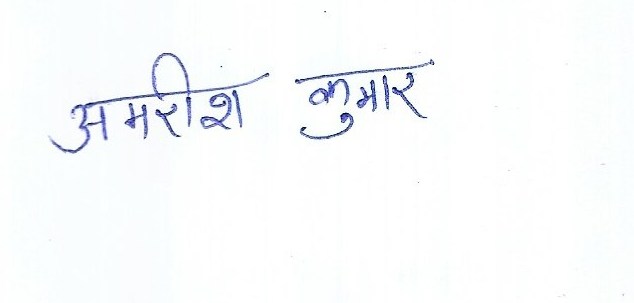 अमरीश कुमार